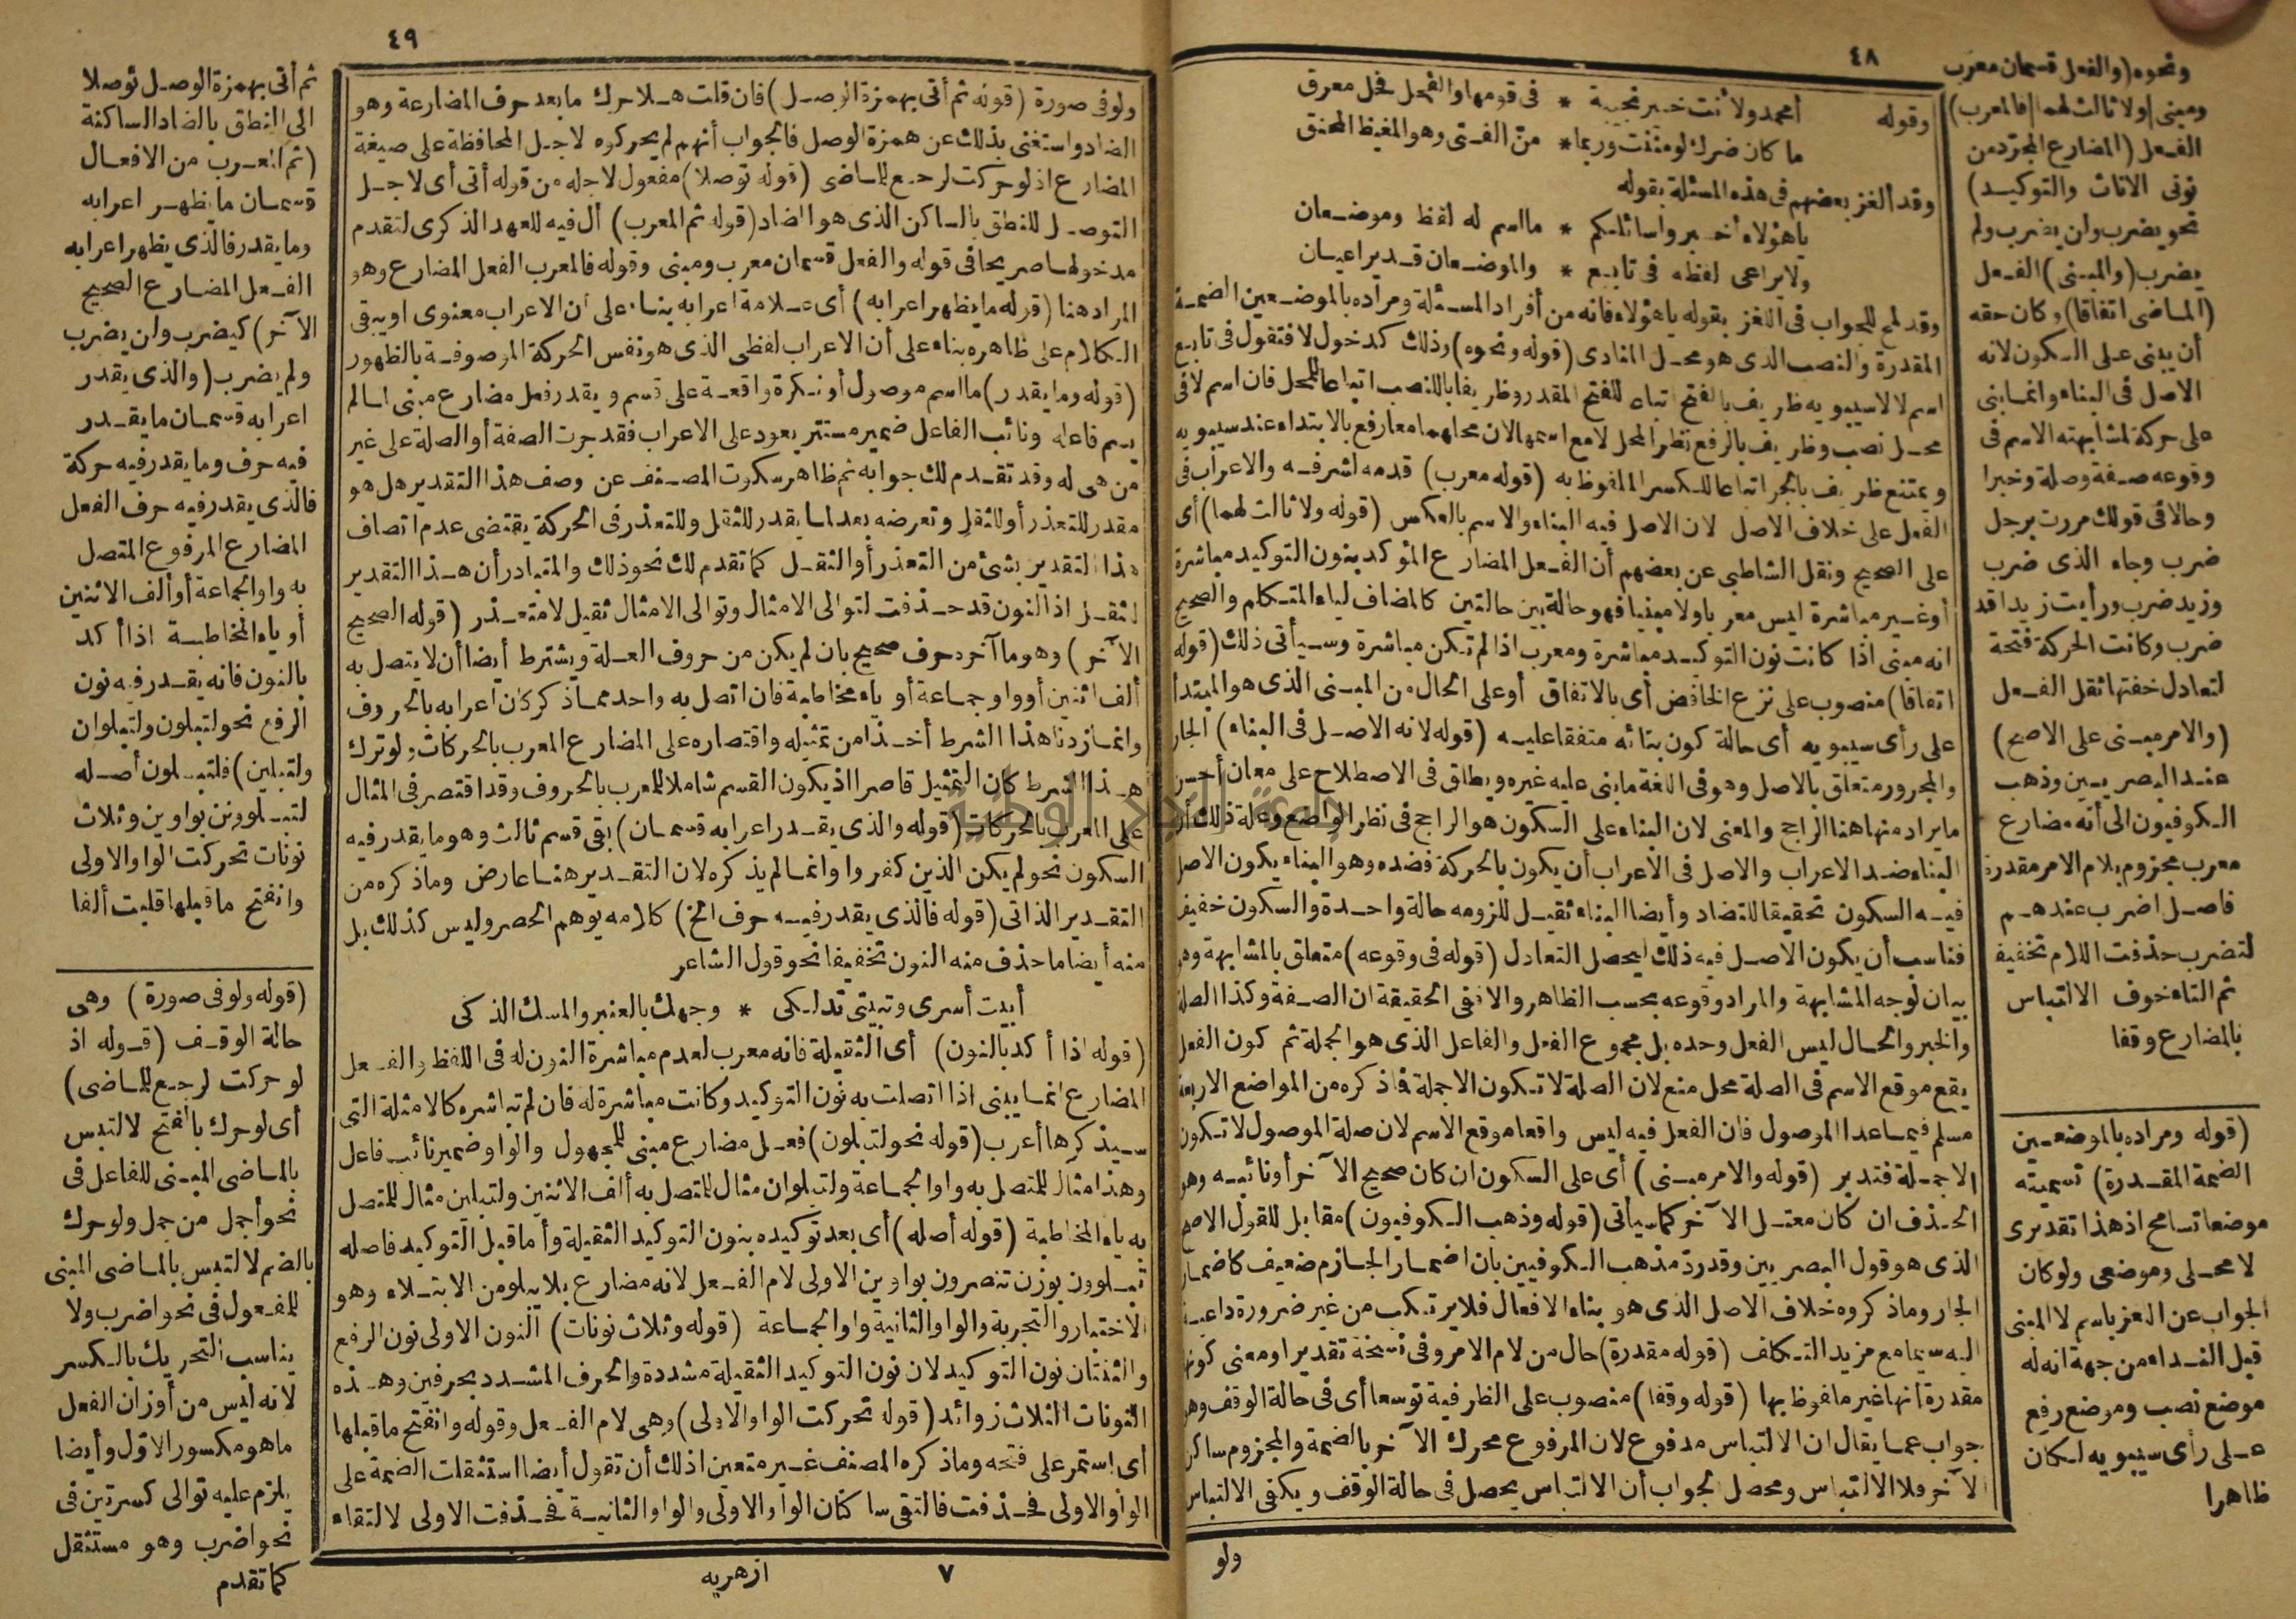 ٤٨
ونحوه (والفعل قسمان معرب
ومبنى) ولا ثالث لهما (فالمعرب)
الفعل (المضارع المجرّد من
نونى الاناث والتوكيد)
نحو يضرب وان يضرب ولم
يضرب (والمبنى) الفعل
(الماضى اتفاقا) وكان حقه
أن يبنى على السكون لانه
الاصل فى البناء وانما بنى
على حركة لمشابهته الاسم فى
وقوعه صفة وصلة وخبرا
وحالا فى قولك مررت برجل
ضرب وجاء الذى ضرب
وزيد ضرب ورأيت زيدا قد
ضرب وكانت الحركة فتحة
لتعادل خفتها ثقل الفعل
(والامر مبنى على الاصح)
عند البصريين وذهب
الكوفيون الى أنه مضارع
معرب مجزوم بلام الامر مقدرة
فاصل اضرب عندهم
لتضرب حذفت اللام تخفيفا
ثم التاء خوف الالتباس
بالمضارع وقفا
(قوله ومراده بالموضعين
الضمة المقدرة) تسميته
موضعا تسامح اذ هذا تقديرى
لا محلى وموضعى ولو كان
الجواب عن اللغز باسم لا المبنى
قبل النداء من جهة انه له
موضع نصب وموضع رفع
على رأى سيبويه لكان
ظاهرا
وقوله
أمحمد ولأنت خير نجيبة * فى قومها والفحل فحل معرق
ما كان ضرك لو مننت وربما * منّ الفتى وهو المغيظ المحنق
وقد ألغز بعضهم فى هذه المسئلة بقوله
ياهؤلاء أخبروا سائلكم * ما اسم له لفظ وموضعان
ولا يراعى لفظه فى تابع * والموضعان قد يراعيان
وقد لمح للجواب فى اللغز بقوله ياهؤلاء فانه من أفراد المسئلة ومراده بالموضعين الضمة
المقدرة والنصب الذى هو محل المنادى (قوله ونحوه) وذلك كدخول لا فتقول فى تابع
اسم لا لا سيبويه ظريف بالفتح اتباعا للفتح المقدر وظريفا بالنصب اتباعا للمحل فان اسم لا فى
محل نصب وظريف بالرفع نظرا لمحل لا مع اسمها لان محلهما معا رفع بالابتداء عند سيبويه
ويمتنع ظريف بالجر اتباعا للكسر الملفوظ به (قوله معرب) قدمه لشرفه والاعراب فى
الفعل على خلاف الاصل لان الاصل فيه البناء والاسم بالعكس (قوله ولا ثالث لهما) أى
على الصحيح ونقل الشاطبى عن بعضهم أن الفعل المضارع المؤكد بنون التوكيد مباشرة
أو غير مباشرة ليس معربا ولا مبنيا فهو حالة بين حالتين كالمضاف لياء المتكلم والصحيح
انه مبنى اذا كانت نون التوكيد مباشرة ومعرب اذا لم تكن مباشرة وسيأتى ذلك (قوله
اتفاقا) منصوب على نزع الخافض أى بالاتفاق أو على الحال من المبنى الذى هو المبتدأ
على رأى سيبويه أى حالة كون بنائه متفقا عليه (قوله لانه الاصل فى البناء) الجار
والمجرور متعلق بالاصل وهو فى اللغة ما بنى عليه غيره ويطلق فى الاصطلاح على معان أحسن
ما يراد منها هنا الراجح والمعنى لان البناء على السكون هو الراجح فى نظر الواضع وعلة ذلك أن
البناء ضد الاعراب والاصل فى الاعراب أن يكون بالحركة فضده وهو البناء يكون الاصل
فيه السكون تحقيقا للتضاد وأيضا البناء ثقيل للزومه حالة واحدة والسكون خفيف
فناسب أن يكون الاصل فيه ذلك ليحصل التعادل (قوله فى وقوعه) متعلق بالمشابهة وهو
بيان لوجه المشابهة والمراد وقوعه بحسب الظاهر والا ففى الحقيقة ان الصفة وكذا الصلة
والخبر والحال ليس الفعل وحده بل مجموع الفعل والفاعل الذى هو الجملة ثم كون الفعل
يقع موقع الاسم فى الصلة محل منع لان الصلة لا تكون الا جملة فما ذكره من المواضع الاربعة
مسلم فيما عدا الموصول فان الفعل فيه ليس واقعا موقع الاسم لان صلة الموصول لا تكون
الا جملة فتدبر (قوله والامر مبنى) أى على السكون ان كان صحيح الآخر أو نائبه وهو
الحذف ان كان معتل الآخر كما سيأتى (قوله وذهب الكوفيون) مقابل للقول الاصح
الذى هو قول البصريين وقد ردّ مذهب الكوفيين بان اضمار الجازم ضعيف كاضمار
الجار وما ذكروه خلاف الاصل الذى هو بناء الافعال فلا يرتكب من غير ضرورة داعية
اليه سيما مع مزيد التكلف (قوله مقدرة) حال من لام الامر وفى نسخة تقديرا ومعنى كونها
مقدرة انها غير ملفوظ بها (قوله وقفا) منصوب على الظرفية توسعا أى فى حالة الوقف وهو
جواب عما يقال ان الالتباس مدفوع لان المرفوع محرك الآخر بالضمة والمجزوم ساكن
الآخر فلا الالتباس ومحصل الجواب أن الالتباس يحصل فى حالة الوقف ويكفى الالتباس
ولو
٤٩
ولو فى صورة (قوله ثم أتى بهمزة الوصل) فان قلت هلا حرك ما بعد حرف المضارعة وهو
الضاد واستغنى بذلك عن همزة الوصل فالجواب أنهم لم يحركوه لاجل المحافظة على صيغة
المضارع اذ لو حركت لرجع للماضى (قوله توصلا) مفعول لاجله من قوله أتى أى لاجل
التوصل للنطق بالساكن الذى هو الضاد (قوله ثم المعرب) أل فيه للعهد الذكرى لتقدم
مدخولها صريحا فى قوله والفعل قسمان معرب ومبنى وقوله فالمعرب الفعل المضارع وهو
المراد هنا (قوله ما يظهر اعرابه) أى علامة اعرابه بناء على ان الاعراب معنوى أو يبقى
الكلام على ظاهره بناء على أن الاعراب لفظى الذى هو نفس الحركة الموصوفة بالظهور
(قوله وما يقدر) ما اسم موصول أو نكرة واقعة على قسم ويقدر فعل مضارع مبنى لما لم
يسم فاعله ونائب الفاعل ضمير مستتر يعود على الاعراب فقد جرت الصفة أو الصلة على غير
من هى له وقد تقدم لك جوابه ثم ظاهر سكوت المصنف عن وصف هذا التقدير هل هو
مقدر للتعذر أو للثقل وتعرضه بعد لما يقدر للثقل وللتعذر فى الحركة يقتضى عدم اتصاف
هذا التقدير بشئ من التعذر أو الثقل كما تقدم لك نحو ذلك والمتبادر أن هذا التقدير
لثقل اذ النون قد حذفت لتوالى الامثال وتوالى الامثال ثقيل لا متعذر (قوله الصحيح
الآخر) وهو ما آخره حرف صحيح بان لم يكن من حروف العلة ويشترط أيضا أن لا يتصل به
ألف اثنين أو واو جماعة أو ياء مخاطبة فان اتصل به واحد مما ذكر كان اعرابه بالحروف
وانما زدنا هذا الشرط أخذا من تمثيله واقتصاره على المضارع المعرب بالحركات ولو ترك
هذا الشرط كان التمثيل قاصرا اذ يكون القسم شاملا للمعرب بالحروف وقد اقتصر فى المثال
على المعرب بالحركات (قوله والذى يقدر اعرابه قسمان) بقى قسم ثالث وهو ما يقدر فيه
السكون نحو لم يكن الذين كفروا وانما لم يذكره لان التقدير هنا عارض وما ذكره من
التقدير الذاتى (قوله فالذى يقدر فيه حرف الخ) كلامه يوهم الحصر وليس كذلك بل
منه أيضا ما حذف منه النون تخفيفا نحو قول الشاعر
أبيت أسرى وتبيتى تدلكى * وجهك بالعنبر والمسك الذكى
(قوله اذا أكد بالنون) أى الثقيلة فانه معرب لعدم مباشرة النون له فى اللفظ والفعل
المضارع انما يبنى اذا اتصلت به نون التوكيد وكانت مباشرة له فان لم تباشره كالامثلة التى
سيذكرها أعرب (قوله نحو لتبلون) فعل مضارع مبنى للمجهول والواو ضمير نائب فاعل
وهذا مثال للمتصل به واو الجماعة ولتبلوان مثال للمتصل به ألف الاثنين ولتبلين مثال للمتصل
به ياء المخاطبة (قوله أصله) أى بعد توكيده بنون التوكيد الثقيلة وأما قبل التوكيد فاصله
تبلوون بوزن تنصرون بواوين الاولى لام الفعل لانه مضارع بلا يبلو من الابتلاء وهو
الاختبار والتجربة والواو الثانية واو الجماعة (قوله وثلاث نونات) النون الاولى نون الرفع
والثنتان نون التوكيد لان نون التوكيد الثقيلة مشددة والحرف المشدد بحرفين وهذه
النونات الثلاث زوائد (قوله تحركت الواو الاولى) وهى لام الفعل وقوله وانفتح ما قبلها
أى استمر على فتحه وما ذكره المصنف غير متعين اذ لك أن تقول أيضا استثقلت الضمة على
الواو الاولى فحذفت فالتقى ساكنان الواو الاولى والواو الثانية فحذفت الاولى لالتقاء
٧ ازهريه
ثم أتى بهمزة الوصل توصلا
الى النطق بالضاد الساكنة
(ثم المعرب من الافعال
قسمان ما يظهر اعرابه
وما يقدر فالذى يظهر اعرابه
الفعل المضارع الصحيح
الآخر) كيضرب ولن يضرب
ولم يضرب (والذى يقدر
اعرابه قسمان ما يقدر
فيه حرف وما يقدر فيه حركة
فالذى يقدر فيه حرف الفعل
المضارع المرفوع المتصل
به واو الجماعة أو ألف الاثنين
أو ياء المخاطبة اذا أكد
بالنون فانه يقدر فيه نون
الرفع نحو لتبلون ولتبلوان
ولتبلين) فلتبلون أصله
لتبلوونن بواوين وثلاث
نونات تحركت الواو الاولى
وانفتح ما قبلها قلبت ألفا
(قوله ولو فى صورة) وهى
حالة الوقف (قوله اذ
لو حركت لرجع للماضى)
أى لو حرك بالفتح لالتبس
بالماضى المبنى للفاعل فى
نحو أجمل من جمل ولو حرك
بالضم لالتبس بالماضى المبنى
للمفعول فى نحو اضرب ولا
يناسب التحريك بالكسر
لانه ليس من أوزان الفعل
ما هو مكسور الاوّل وأيضا
يلزم عليه توالى كسرتين فى
نحو اضرب وهو مستثقل
كما تقدم